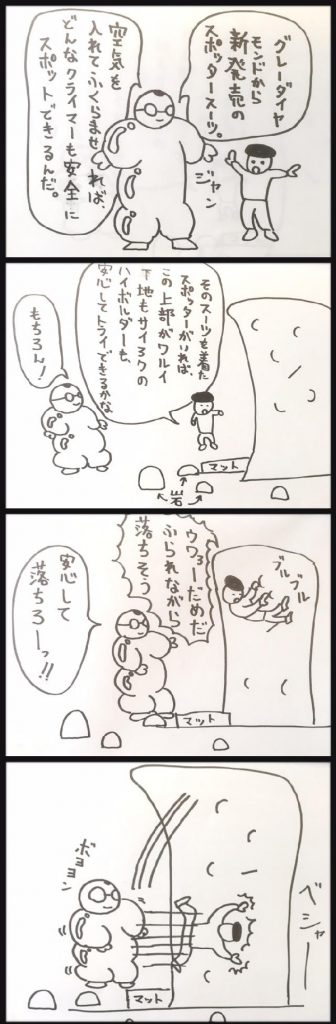 グレーダイヤ
モンドから
新発売の
スポッタースーツ。
空気を
入れてふくらませれば、
どんなクライマーも安全に
スポットできるんだ。
ジャン
そのスーツを着た
スポッターがいれば、
この上部がワルイ
下地もサイアクの
ハイボルダーも、
安心してトライできるかな
もちろん!
マット
岩
ブルブル
ウワァーだめだ
ふられながら
落ちそう
安心して
落ちろーっ!!
マット
ベシャー
ボヨヨン
マット